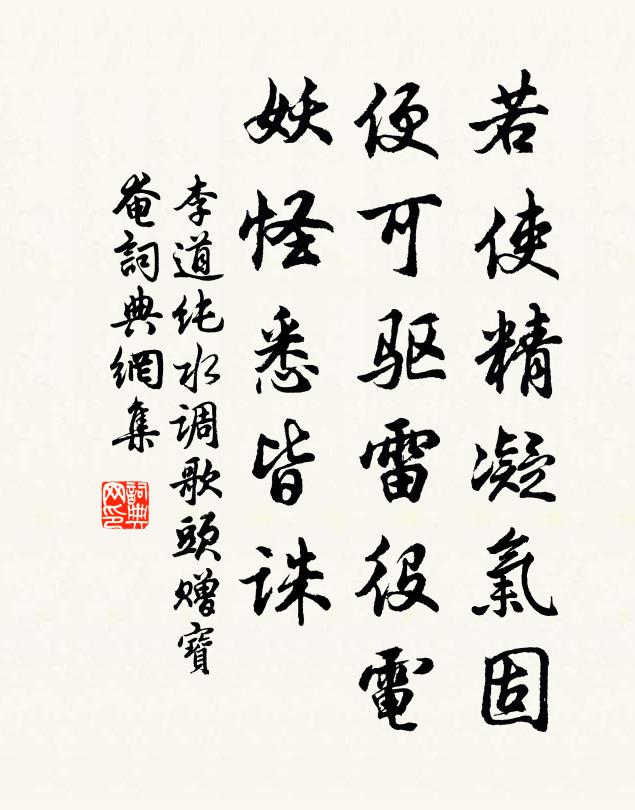 若使精凝氣固
便可驱雷役電
妖怪悉皆诛
李道纯水调歌頭赠寶
奄詞典網集
詞典网印